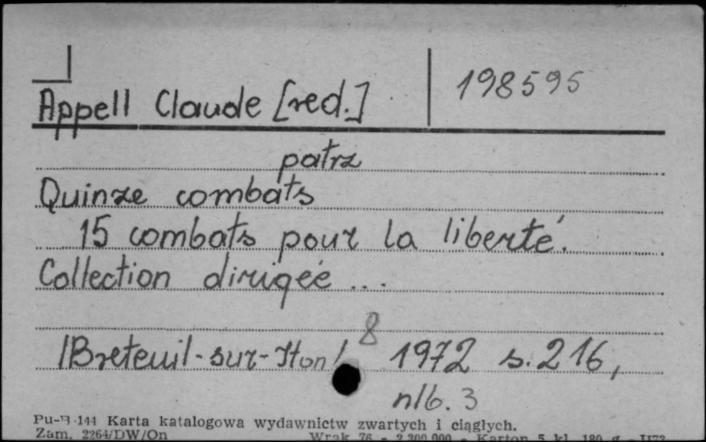 Appell Claude [red.] 198595
patrz
Quinze combats
15 combats pour la liberté.
Collection dirigée ...
/Breteuil-sur-Iton/ 8 1972 s. 216,
nlb. 3
Pu-B 144 Karta katalogowa wydawnictw zwartych i ciągłych.
Zam. 2264/DW/On Wrak 76 - 2.200.000 - Karton 5 kl. 180 g